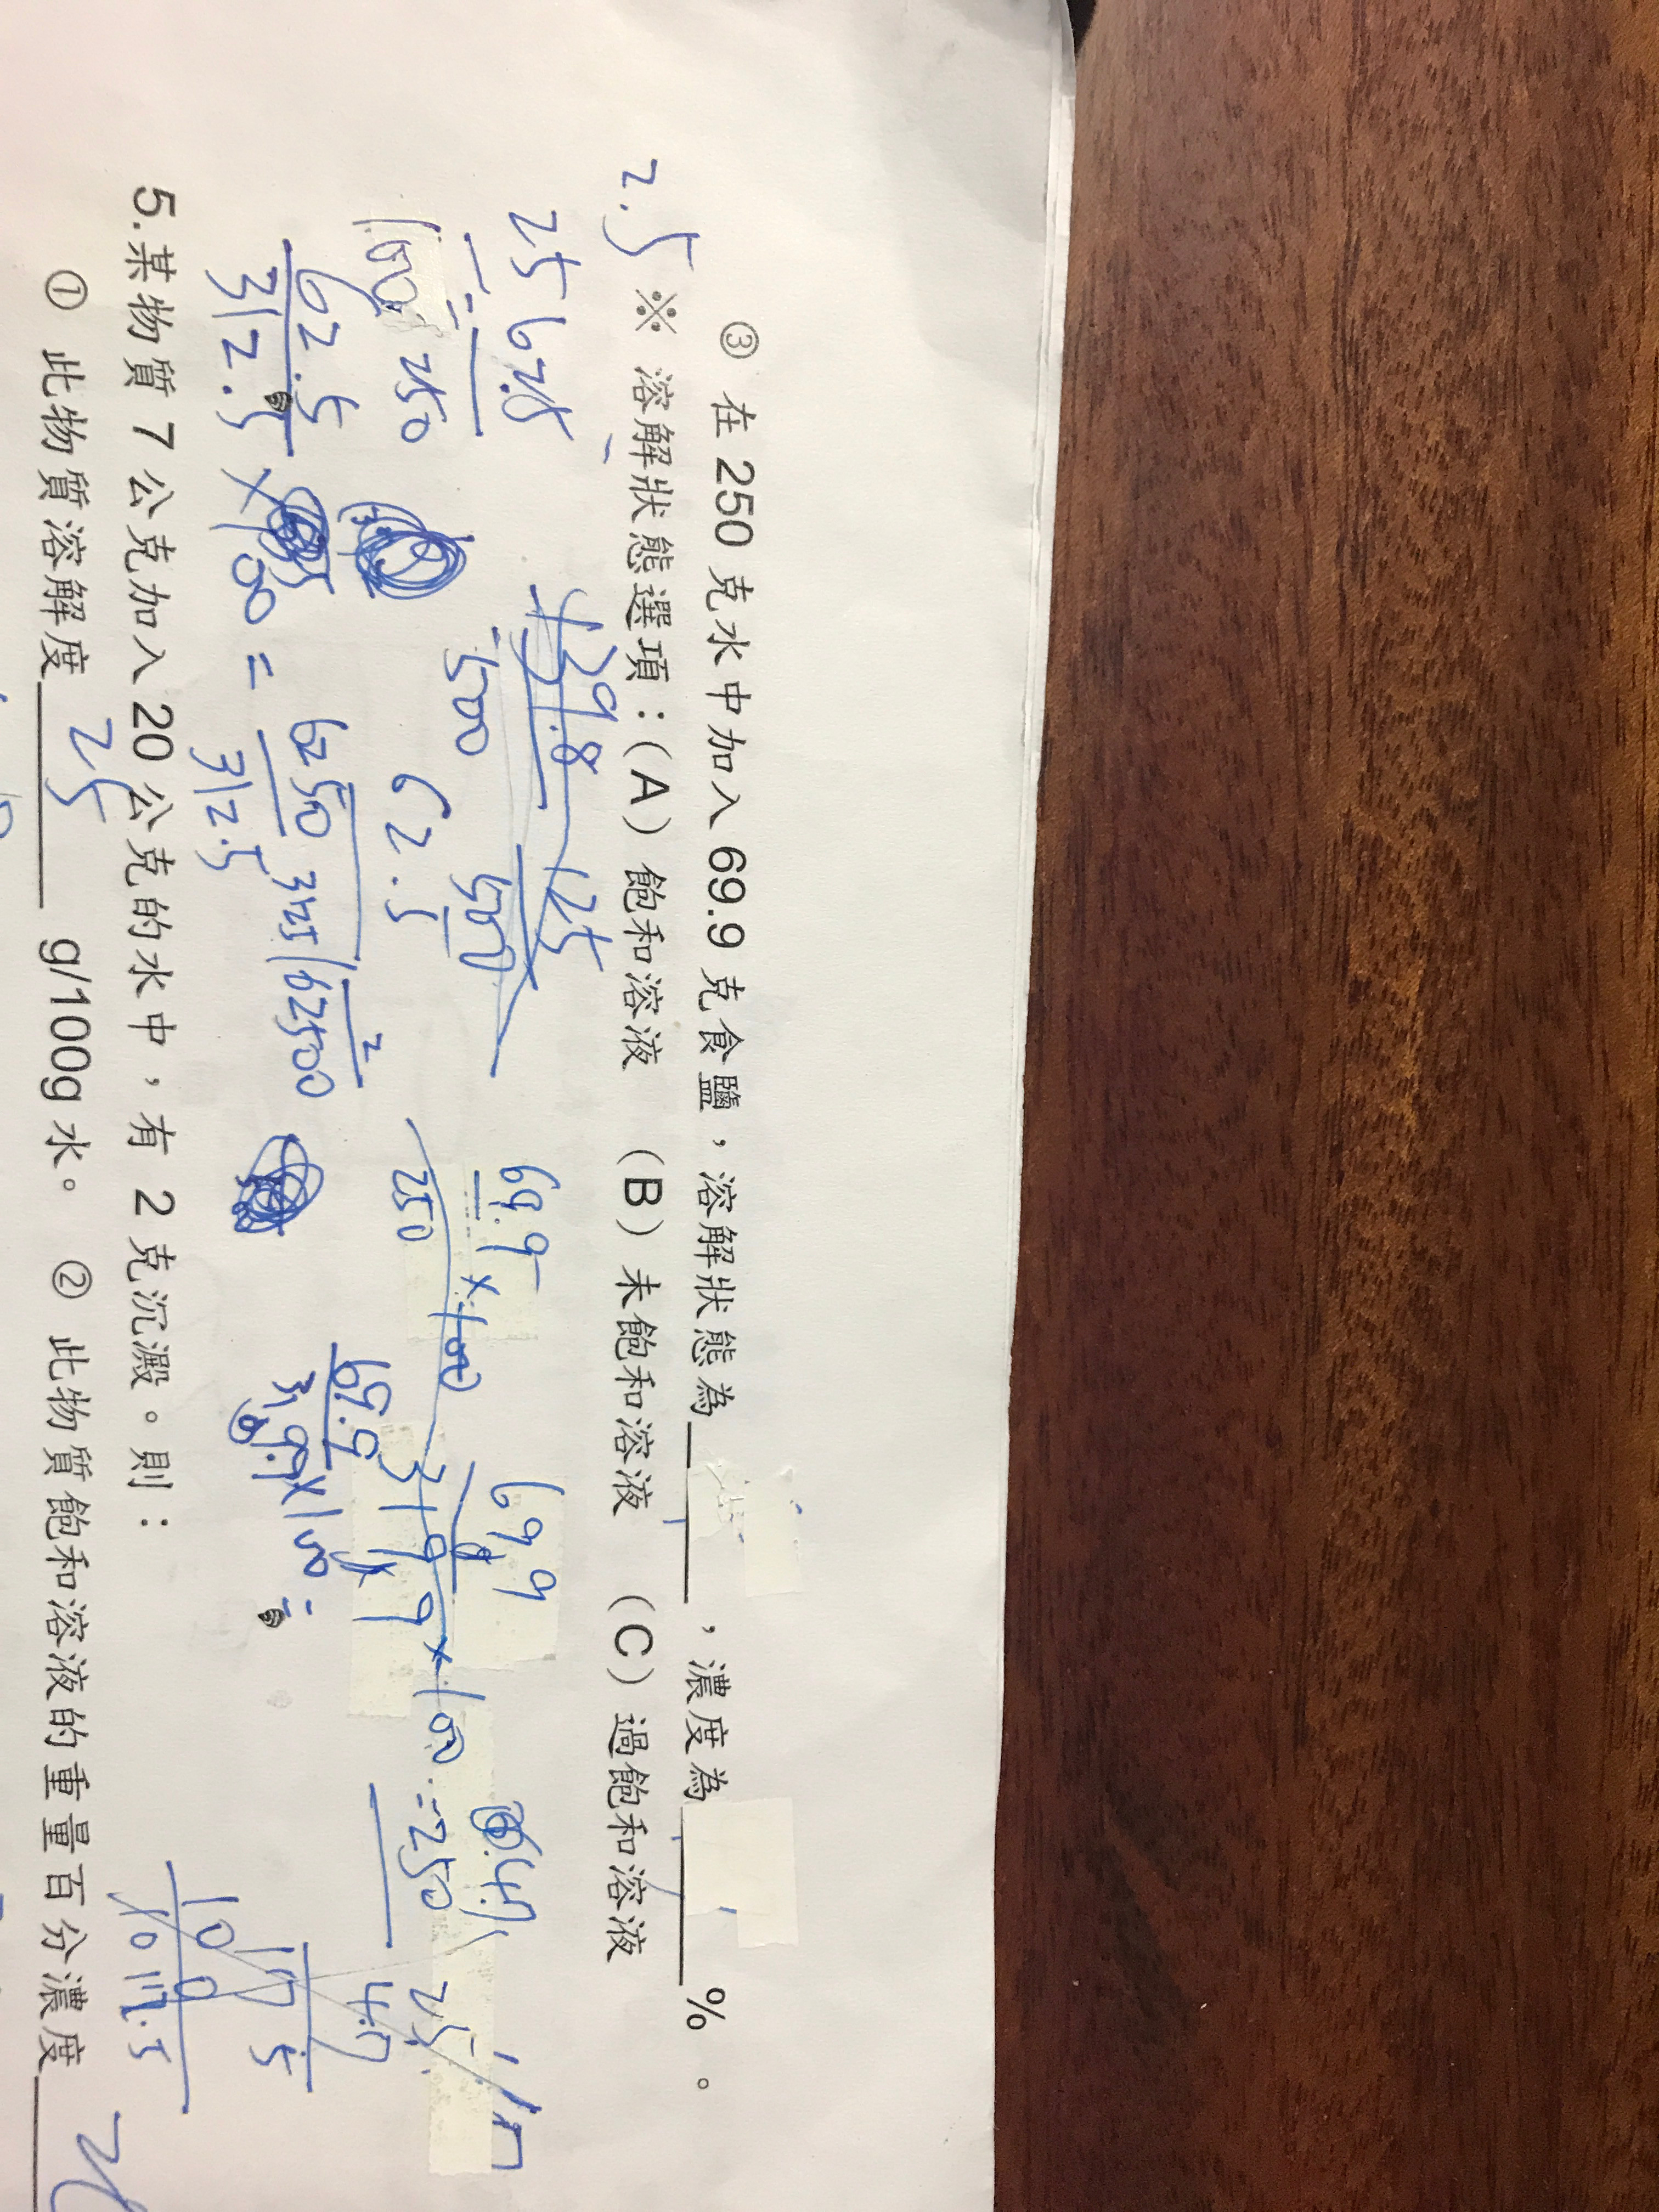 ③ 在 250 克水中加入 69.9 克食鹽，溶解狀態為______，濃度為______%。
2.5
※ 溶解狀態選項：(A) 飽和溶液 (B) 未飽和溶液 (C) 過飽和溶液
25 62.5
100 250
39.8 125
500 500
62.5
69.9 × 100
250
699
319.9 × 100 = 250
62.5
312.5 × 100 = 6250
312.5
3125 62500
2
69.9
319.9 × 100 =
4.7
25
175
10
10 17.5
5.某物質 7 公克加入 20 公克的水中，有 2 克沉澱。則：
① 此物質溶解度 25 g/100g 水。 ② 此物質飽和溶液的重量百分濃度